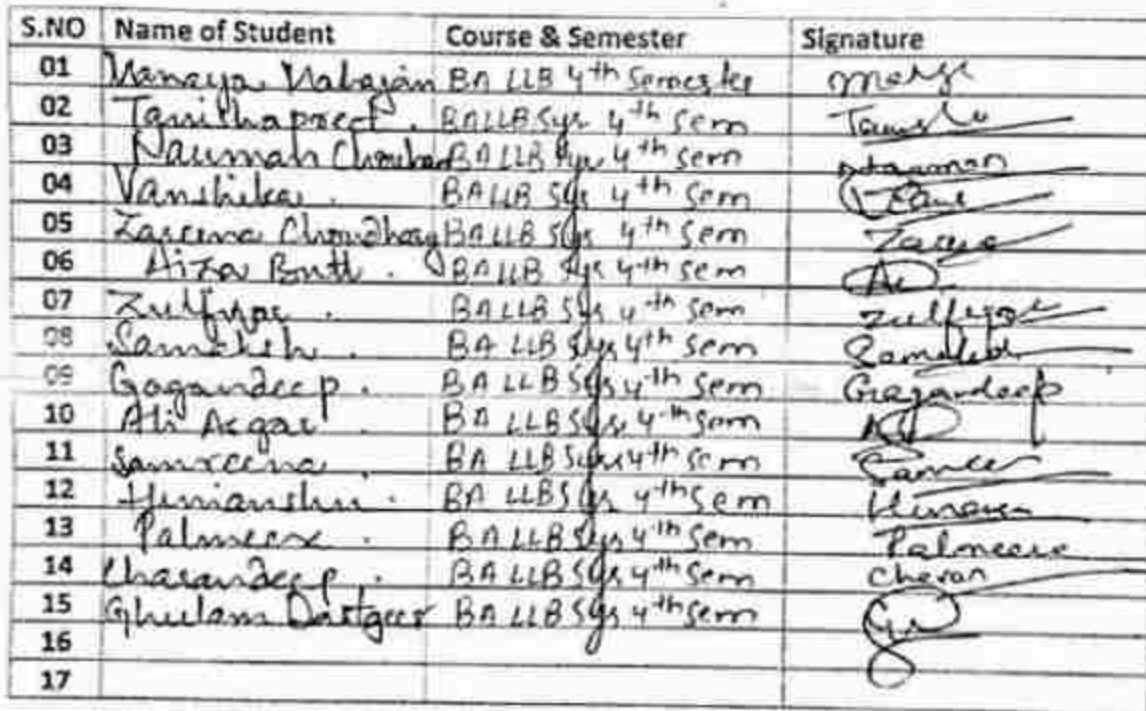 S.NO Name of Student Course & Semester Signature
01 Manaya Mahajan BA LLB 4th Semester
02 Tanithapreet . BALLB 5yr 4th Sem
03 Nauman Chouhan BALLB 5yr 4th Sem Nauman
04 Vanshika . BALLB 5yr 4th Sem
05 Zareena Choudhary BALLB 5yr 4th Sem
06 Aiza Butt . BALLB 5yr 4th Sem
07 Zulfqar . BALLB 5yr 4th Sem Zulfqar
08 BA LLB 5yr 4th Sem
09 Gagandeep . BA LLB 5yr 4th Sem Gagandeep
10 Ali Asgar BA LLB 5yr 4th Sem
11 Samreena . BA LLB 5yr 4th Sem
12 Himanshu . BA LLB 5yr 4th Sem
13 Palmeera . BA LLB 5yr 4th Sem Palmeera
14 Charandeep . BA LLB 5yr 4th Sem Charan
15 Ghulam Dastgeer BA LLB 5yr 4th Sem
16
17